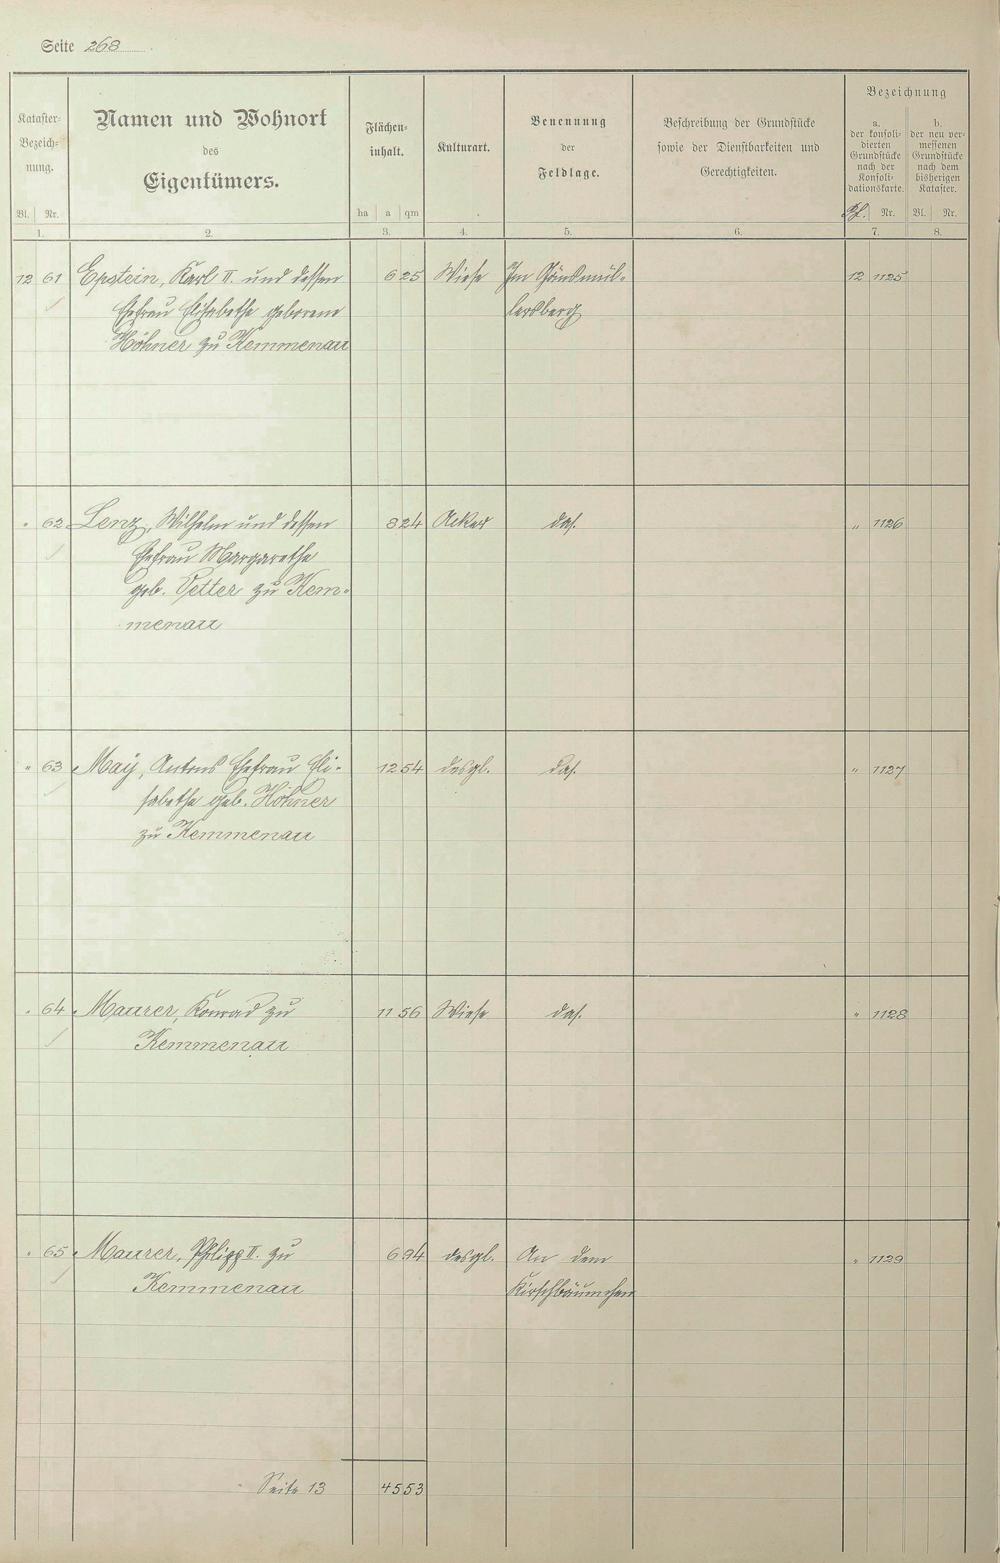 Seite 268
Kataster-
Bezeich-
nung.
Bl. Nr.
1.
Namen und Wohnort
des
Eigentümers.
2.
Flächen-
inhalt.
ha a qm
3.
Kulturart.
4.
Benennung
der
Feldlage.
5.
Beschreibung der Grundstücke
sowie der Dienstbarkeiten und
Gerechtigkeiten.
6.
Bezeichnung
a.
der konsoli-
dierten
Grundstücke
nach der
Konsoli-
dationskarte.
Nr.
7.
b.
der neu ver-
messenen
Grundstücke
nach dem
bisherigen
Kataster.
Bl. Nr.
8.
12 61 Epstein, Karl II. und dessen 6 25 Wiese Im Gänsmül- 12 1125
Ehefrau Elisabethe geborene lersberg
Höhner zu Kemmenau
" 62 Lenz, Wilhelm und dessen 8 24 Acker das. " 1126
Ehefrau Margarethe
geb. Vetter zu Kem-
menau
" 63 May, Antons Ehefrau Eli- 12 54 desgl. das. " 1127
sabethe geb. Höhner
zu Kemmenau
" 64 Maurer, Konrad zu 11 56 Wiese das. " 1128
Kemmenau
" 65 Maurer, Philipp II. zu 6 94 desgl. An dem " 1129
Kemmenau Kirschbäumchen
Seite 13 45 53